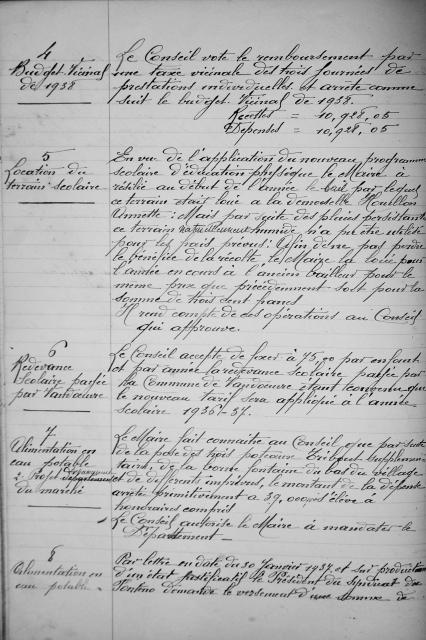 4
Budget Vicinal
de 1938
Le Conseil vote le remboursement par
une taxe vicinale des trois journées de
prestations individuelles et arrête comme
suit le budget Vicinal de 1938.
Recettes = 10,928,05
Dépenses = 10,928,05
5
Location du
terrain scolaire
En vue de l'application du nouveau programme
scolaire d'éducation physique le Maire a
résilié au début de l'année le bail par lequel
ce terrain était loué à la demoiselle Houillon
Annette : Mais par suite des pluies persistantes
ce terrain humide n'a pu être utilisé
pour les prévus : Afin de ne pas perdre
le bénéfice de la récolte, le Maire l'a loué pour
l'année en cours à l'ancien bailleur pour le
même prix que précédemment soit pour la
somme de trois cent francs
Il rend compte de ces opérations au Conseil
qui approuve.
6
Redevance
Scolaire payée
par Vandoeuvre
Le Conseil accepte de fixer à 75,00 par enfant
et par année la redevance scolaire payée par
la Commune de Vandoeuvre étant convenu que
le nouveau tarif sera appliqué à l'année
scolaire 1936-37.
7
Alimentation en
eau potable
Projet
du marché
Le Maire fait connaitre au Conseil, que par suite
de la pose des trois poteaux Tribout supplémen
taires, de la borne fontaine du bas du village
et de différents imprévus, le montant de la dépense
arrêté primitivement à 39,000 s'élève à
honoraires compris
Le Conseil autorise le Maire à mandater le
Dépassement
8
Alimentation en
eau potable
Par lettre en date du 30 Janvier 1937, et sur production
d'un état justificatif le Président du Syndicat de
demande le versement d'une somme de